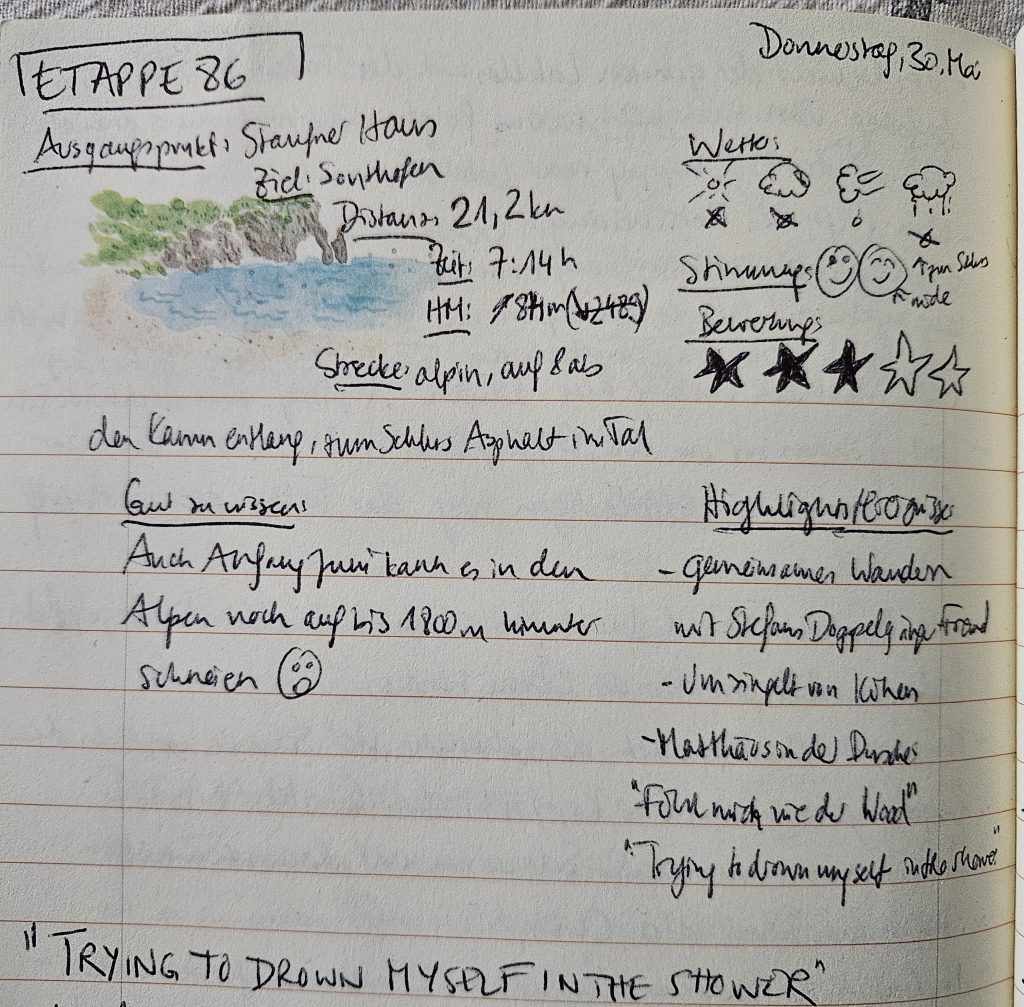 ETAPPE 86
Donnerstag, 30. Mai
Ausgangspunkt: Staufner Haus
Ziel: Sonthofen
Distanz: 21,2 km
Zeit: 7:14 h
HM:
Strecke: alpin, auf & ab
den Kamm entlang, zum Schluss Asphalt im Tal
Wetter:
zum Schluss
Stimmung:
müde
Bewertung:
Gut zu wissen:
Auch Anfang Juni kann es in den
Alpen noch auf bis 1800m hinunter
schneien
Highlights/Ereignisse
- gemeinsames Wandern
mit Stefans Doppelgänger Freund
- Umzingelt von Kühen
- Matthäus in der Dusche:
"Fühl mich wie der Wood"
"Trying to drown myself in the shower"
"TRYING TO DROWN MYSELF IN THE SHOWER"